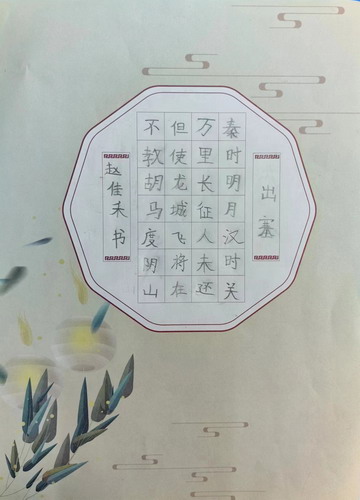 出塞
秦时明月汉时关
万里长征人未还
但使龙城飞将在
不教胡马度阴山
赵佳未书